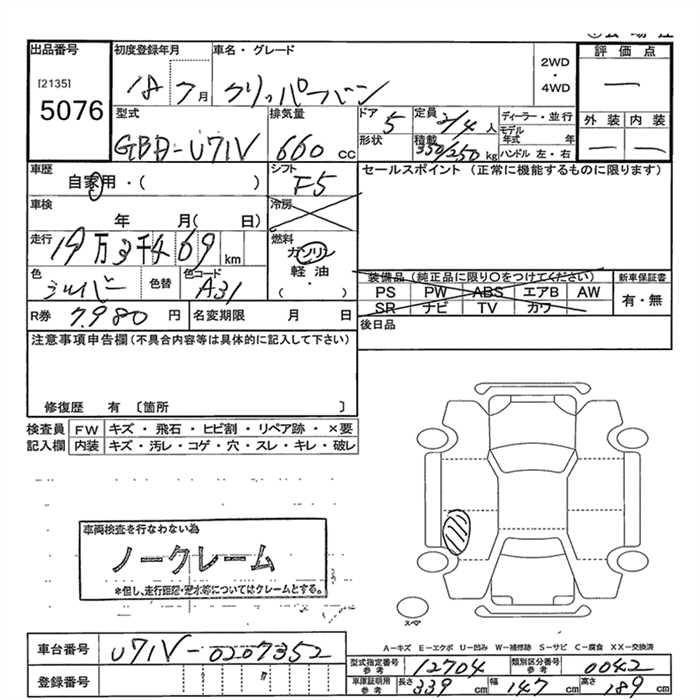 出品番号
[2135]
5076
初度登録年月
18 7 月
車名・グレード
クリッパーバン
2WD
・
4WD
評価点
—
外装 内装
— —
型式
GBD-U71V
排気量
660 cc
ドア
5
形状
定員
2/4 人
積載
350/250 kg
ディーラー・並行
モデル年式 年
ハンドル 左・右
車歴
自家用・( )
シフト
F5
セールスポイント (正常に機能するものに限ります)
車検
年 月( 日)
冷房
走行
19万3千469 km
燃料
ガソリン
軽油
( ・ )
色
シルバー
色替
色コード
A31
装備品 (純正品に限り○をつけてください)
PS PW ABS エアB AW
SR ナビ TV カワ
新車保証書
有・無
R券 7,980 円
名変期限 月 日
後日品
注意事項申告欄 (不具合内容等は具体的に記入して下さい)
修復歴 有 〔箇所 〕
検査員 FW キズ・飛石・ヒビ割・リペア跡・×要
記入欄 内装 キズ・汚レ・コゲ・穴・スレ・キレ・破レ
車両検査を行なわない為
ノークレーム
スペア
A−キズ E−エクボ U−凹み W−補修跡 S−サビ C−腐食 XX−交換済
車台番号 U71V-0207352
登録番号
型式指定番号 参考 12704
類別区分番号 参考 0042
車庫証明用 参考 長さ 339 cm 幅 147 cm 高さ 189 cm